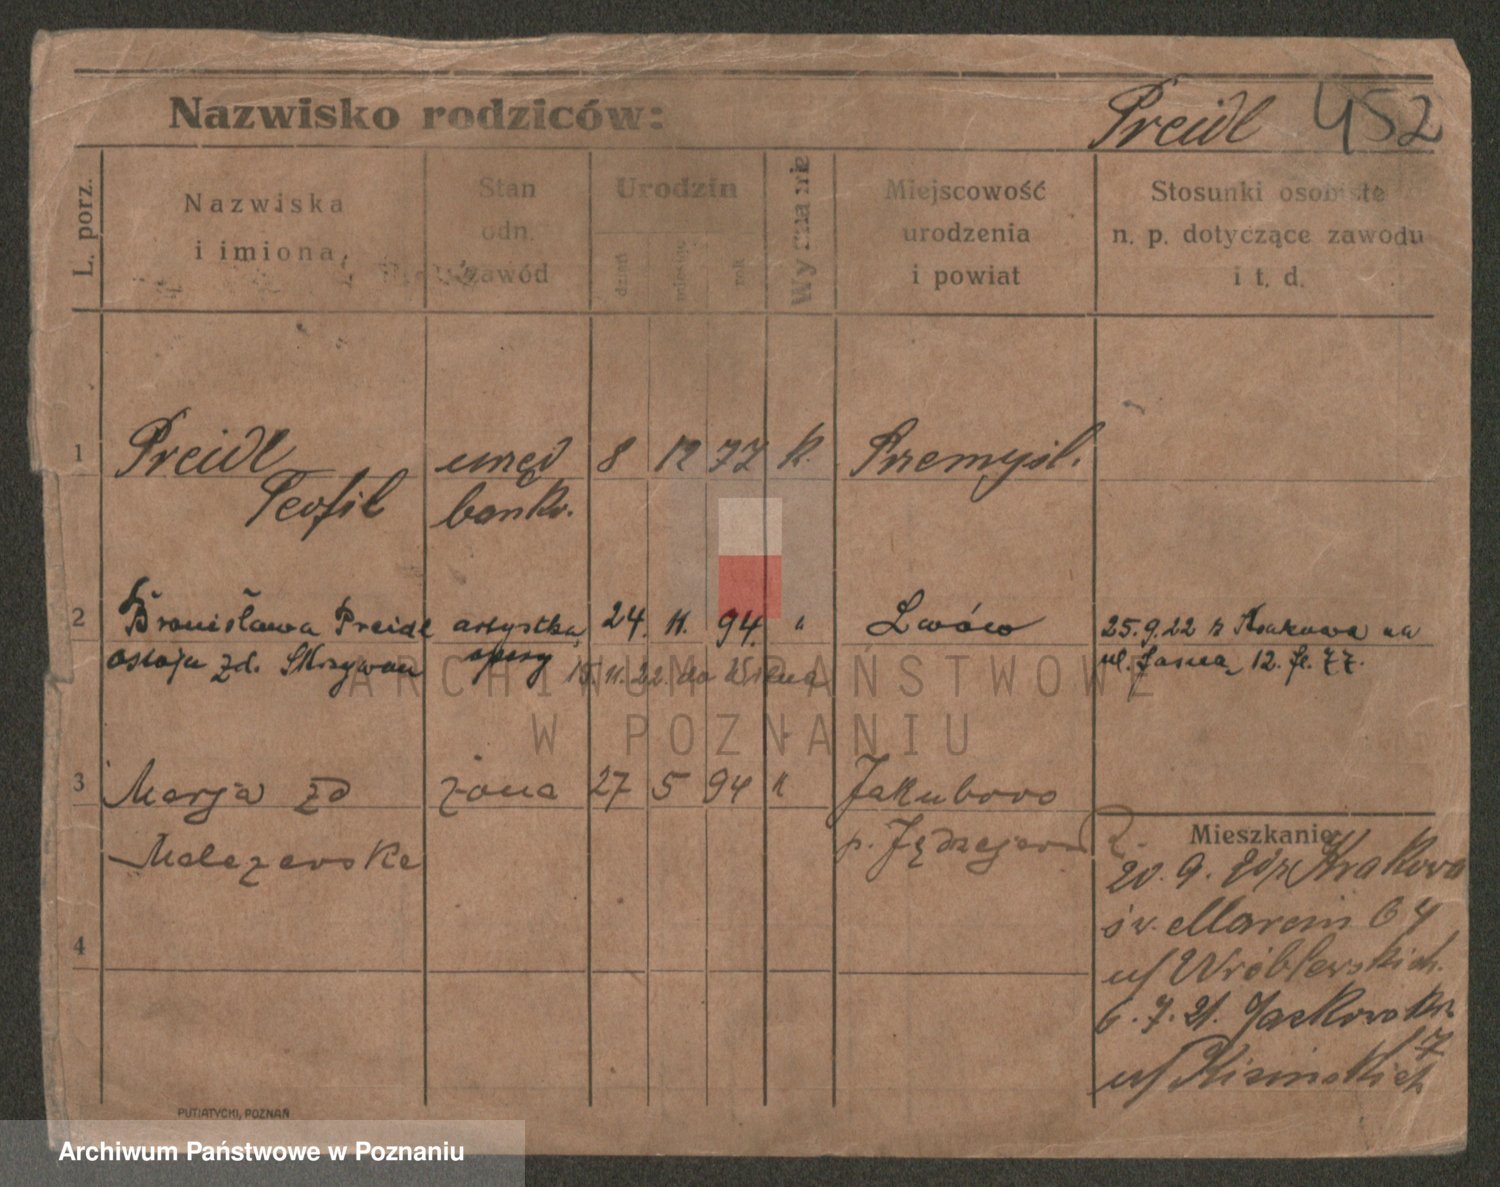 Nazwisko rodziców: Preidl 452
L. porz.
Nazwiska
i imiona
Stan
odn.
zawód
Urodzin
dzień
miesiąc
rok
Wyznanie
Miejscowość
urodzenia
i powiat
Stosunki osobiste
n. p. dotyczące zawodu
i t. d.
1 Preidl urzęd 8 12 77 k. Przemyśl.
Teofil bank.
2 Bronisława Preidl artystka 24. 11. 94. " Lwów 25.9.22 z Krakowa na
zd. Skrzywan opery 15.11.22. do Wilna ul. Jasna 12.
3 Marja zd żona 27 5 94 " Jakubowo
Malczewska p. Jędrzejów
Mieszkanie:
20. 9. 20 z Krakowa
św. Marcin 64
u/ Wróblewskich.
4
6. 7. 21. Jackowsk.
17
u/
PUTIATYCKI, POZNAŃ
ARCHIWUM PAŃSTWOWE
W POZNANIU
Archiwum Państwowe w Poznaniu